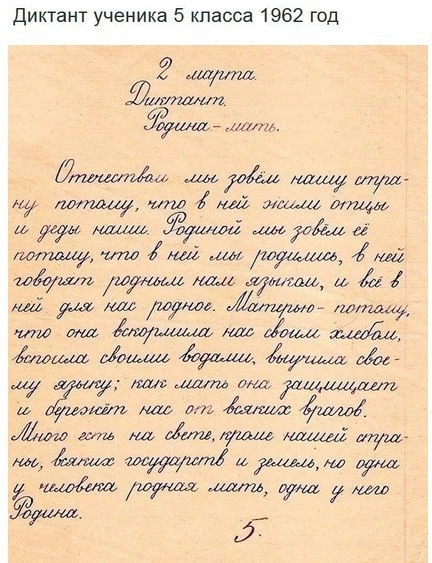 Диктант ученика 5 класса 1962 год
2 марта.
Диктант.
Родина – мать.
Отечеством мы зовём нашу стра-
ну потому, что в ней жили отцы
и деды наши. Родиной мы зовём её
потому, что в ней мы родились, в ней
говорят родным нам языком, и всё в
ней для нас родное. Матерью – потому,
что она вскормила нас своим хлебом,
вспоила своими водами, выучила свое-
му языку; как мать она защищает
и бережёт нас от всяких врагов.
Много есть на свете, кроме нашей стра-
ны, всяких государств и земель, но одна
у человека родная мать, одна у него
Родина.
5.